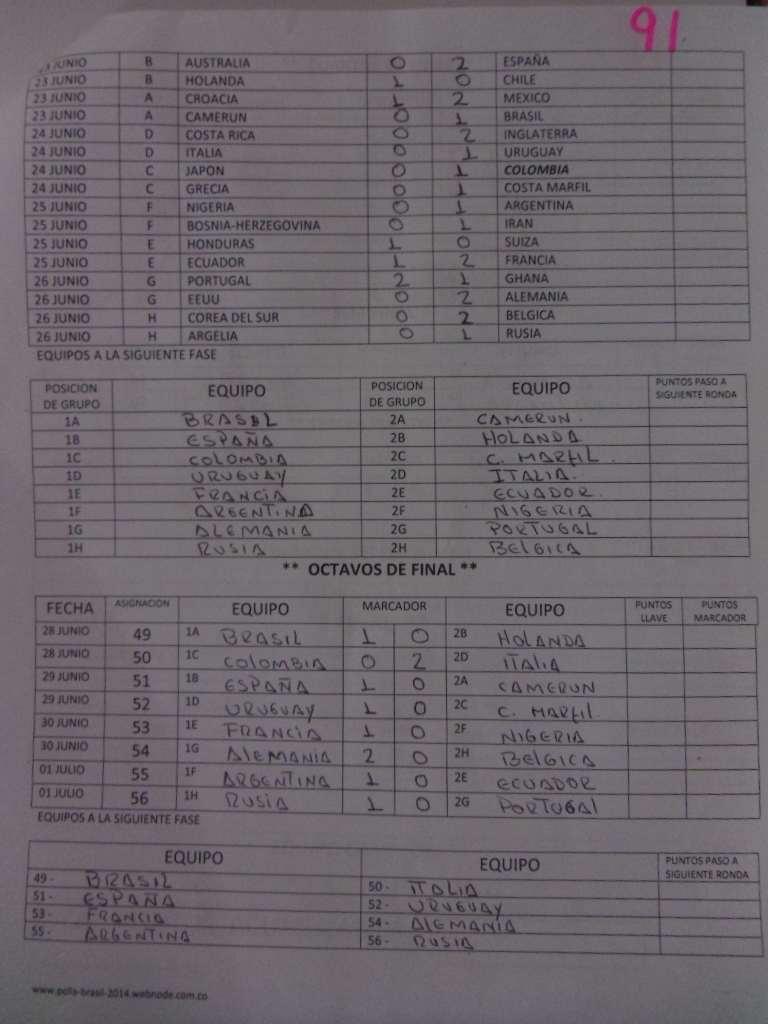 91
23 JUNIO B AUSTRALIA 0 2 ESPAÑA
23 JUNIO B HOLANDA 1 0 CHILE
23 JUNIO A CROACIA 1 2 MEXICO
23 JUNIO A CAMERUN 0 1 BRASIL
24 JUNIO D COSTA RICA 0 2 INGLATERRA
24 JUNIO D ITALIA 0 1 URUGUAY
24 JUNIO C JAPON 0 1 COLOMBIA
24 JUNIO C GRECIA 0 1 COSTA MARFIL
25 JUNIO F NIGERIA 0 1 ARGENTINA
25 JUNIO F BOSNIA-HERZEGOVINA 0 1 IRAN
25 JUNIO E HONDURAS 1 0 SUIZA
25 JUNIO E ECUADOR 1 2 FRANCIA
26 JUNIO G PORTUGAL 2 1 GHANA
26 JUNIO G EEUU 0 2 ALEMANIA
26 JUNIO H COREA DEL SUR 0 2 BELGICA
26 JUNIO H ARGELIA 0 1 RUSIA
EQUIPOS A LA SIGUIENTE FASE
POSICION DE GRUPO EQUIPO POSICION DE GRUPO EQUIPO PUNTOS PASO A SIGUIENTE RONDA
1A BRASIL 2A CAMERUN.
1B ESPAÑA 2B HOLANDA
1C COLOMBIA 2C C. MARFIL.
1D URUGUAY 2D ITALIA.
1E FRANCIA 2E ECUADOR.
1F ARGENTINA 2F NIGERIA
1G ALEMANIA 2G PORTUGAL
1H RUSIA 2H BELGICA
** OCTAVOS DE FINAL **
FECHA ASIGNACION EQUIPO MARCADOR EQUIPO PUNTOS LLAVE PUNTOS MARCADOR
28 JUNIO 49 1A BRASIL 1 0 2B HOLANDA
28 JUNIO 50 1C COLOMBIA 0 2 2D ITALIA
29 JUNIO 51 1B ESPAÑA 1 0 2A CAMERUN
29 JUNIO 52 1D URUGUAY 1 0 2C C. MARFIL.
30 JUNIO 53 1E FRANCIA 1 0 2F NIGERIA
30 JUNIO 54 1G ALEMANIA 2 0 2H BELGICA
01 JULIO 55 1F ARGENTINA 1 0 2E ECUADOR
01 JULIO 56 1H RUSIA 1 0 2G PORTUGAL
EQUIPOS A LA SIGUIENTE FASE
EQUIPO EQUIPO PUNTOS PASO A SIGUIENTE RONDA
49 - BRASIL 50 - ITALIA
51 - ESPAÑA 52 - URUGUAY
53 - FRANCIA 54 - ALEMANIA
55 - ARGENTINA 56 - RUSIA
www.polla-brasil-2014.webnode.com.co